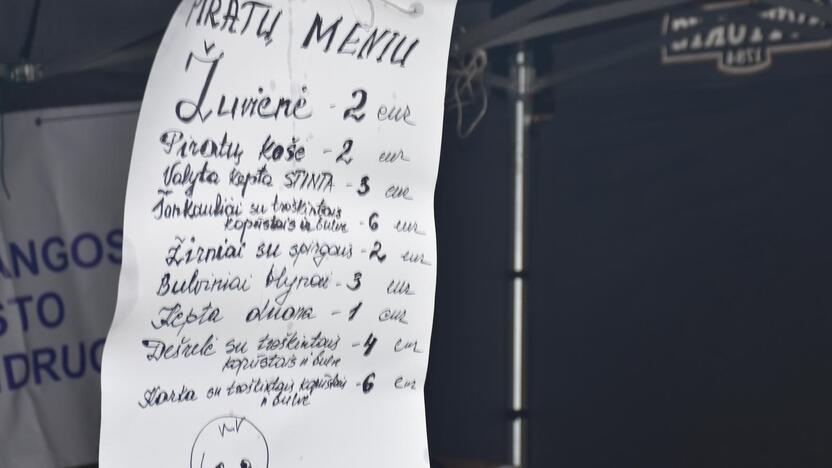 PIRATŲ MENIU
Žuvienė - 2 eur
Piratų košė - 2 eur
Valyta kepta STINTA - 3 eur
Šonkauliai su troškintais
kopūstais ir bulve - 6 eur
Žirniai su spirgais - 2 eur
Bulviniai blynai - 3 eur
Kepta duona - 1 eur
Dešrelė su troškintais - 4 eur
kopūstais ir bulve
Karka su troškintais kopūstais - 6 eur
ir bulve
ANGOS
STO
DRUG